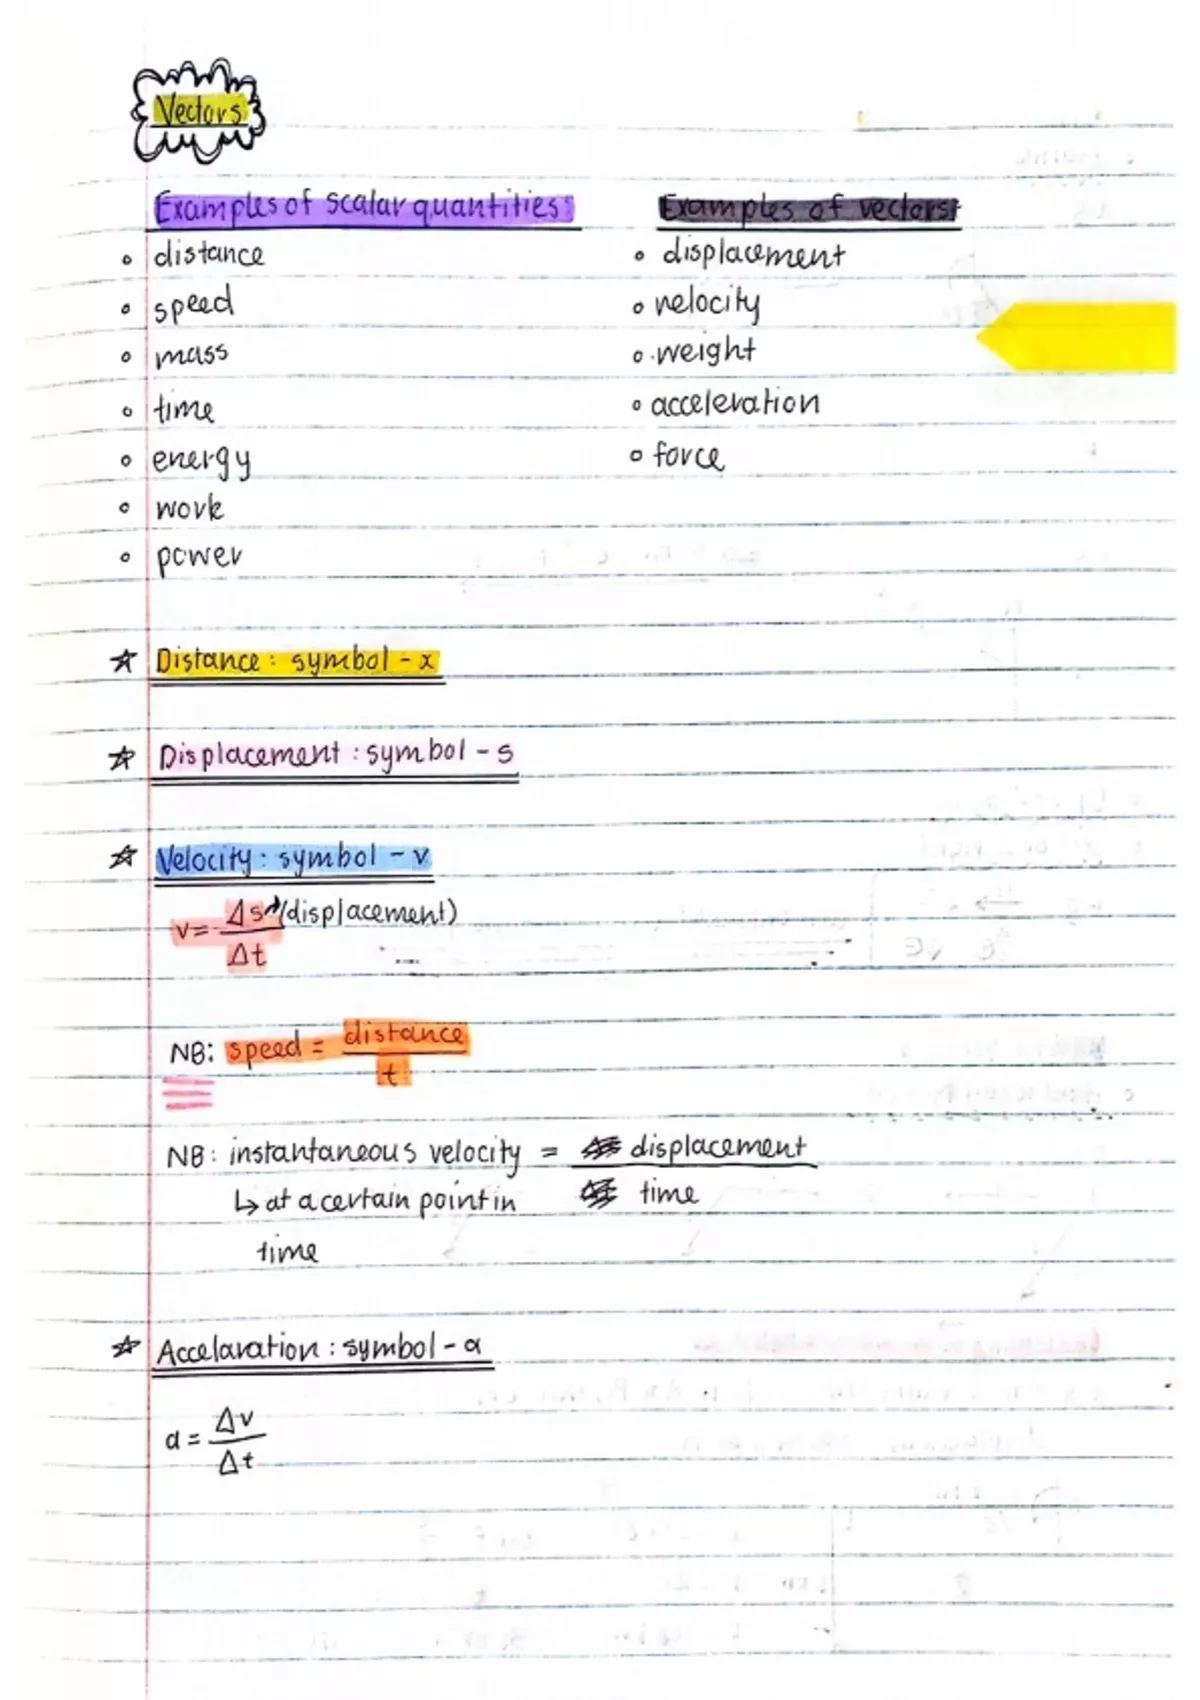 Vectors
Examples of scalar quantities:
Examples of vectors:
• distance
• displacement
• speed
• velocity
• mass
• weight
• time
• acceleration
• energy
• force
• work
• power
☆ Distance: symbol - x
☆ Displacement : symbol - s
☆ Velocity: symbol - v
v = Δs (displacement)
Δt
NB: speed = distance
t
NB: instantaneous velocity = displacement
↳ at a certain point in time
time
☆ Accelaration : symbol - a
a = Δv
Δt